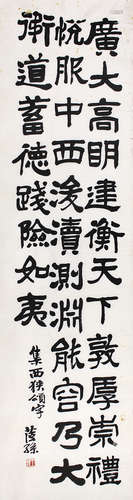 廣大高明建衡天下敦厚崇禮
悅服中西浚瀆測淵能容乃大
衛道蓄德踐險如夷
集西狹頌字